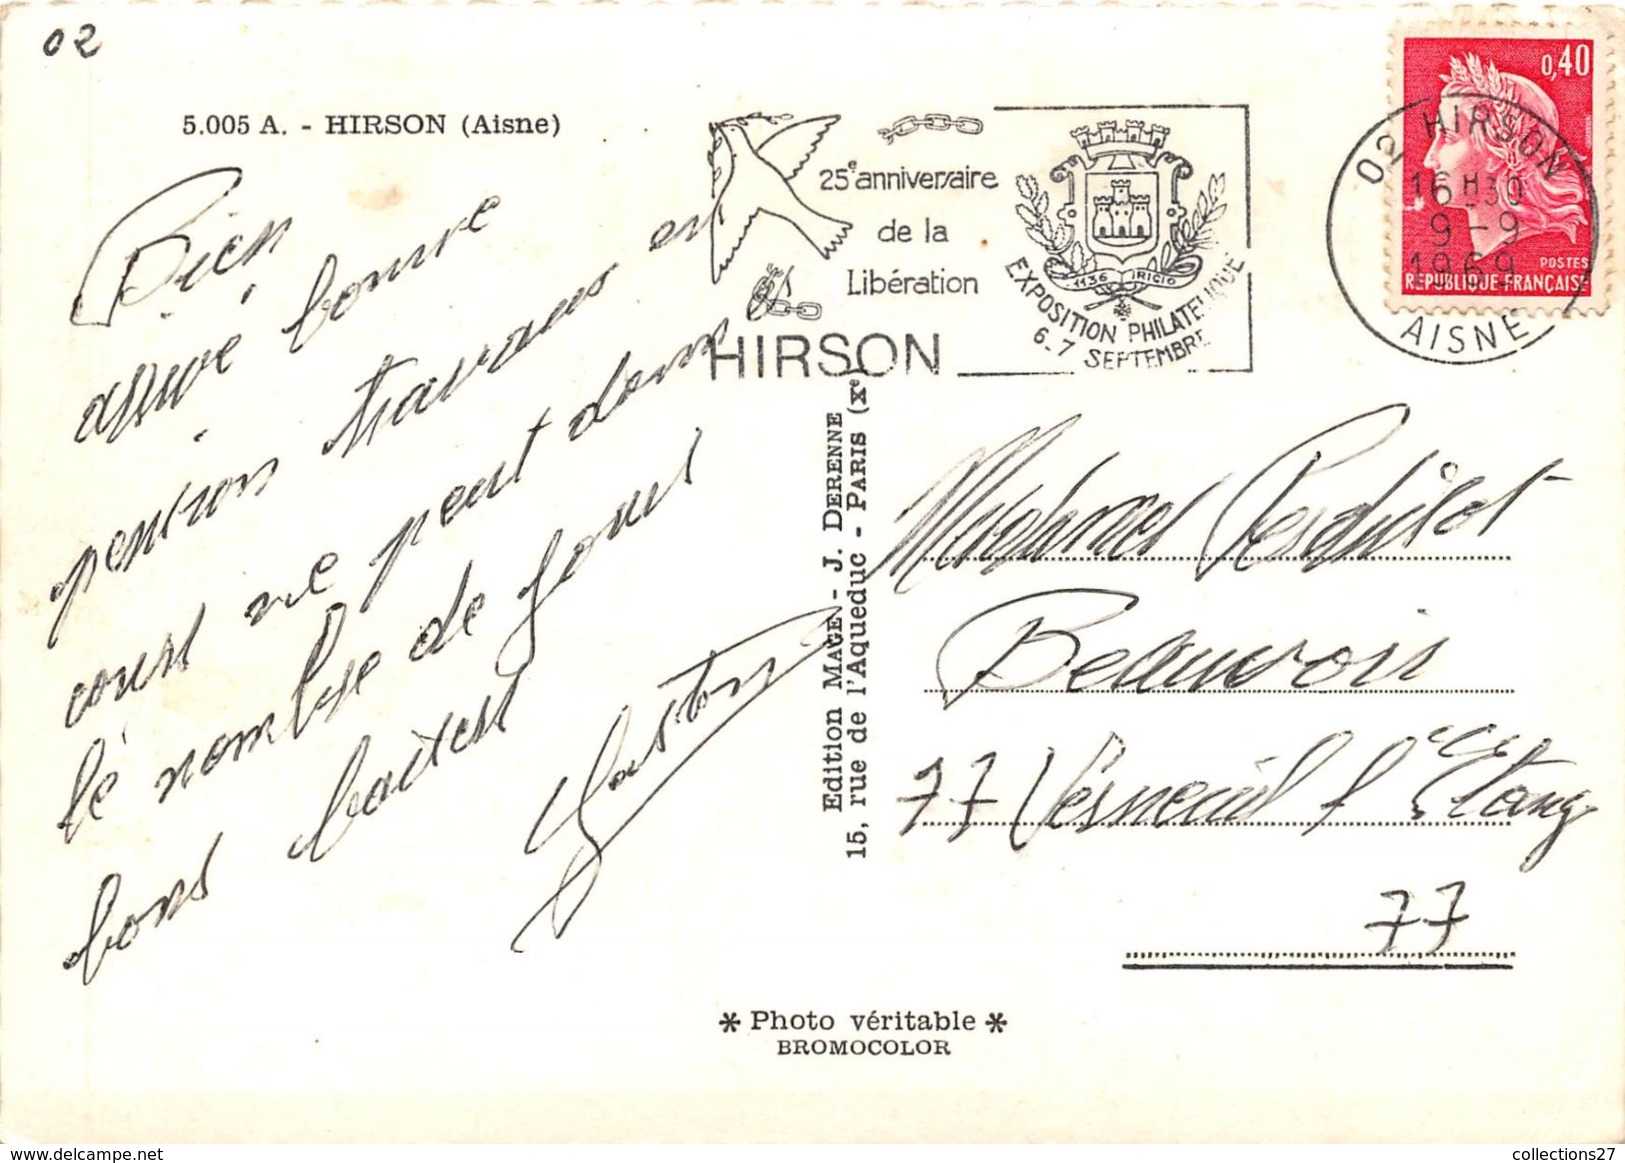 02
5.005 A. - HIRSON (Aisne)
25e anniversaire
de la
Libération
HIRSON
1136 IRICIO
EXPOSITION PHILATELIQUE
6-7 SEPTEMBRE
0,40
POSTES
REPUBLIQUE FRANÇAISE
02 HIRSON
16 H 30
9-9
1969
AISNE
Bien
bonne
pension travaux en
cours ne peut dans
le nombre de jours
bons baisers
Gaston
Edition MAGE - J. DERENNE
15, rue de l'Aqueduc - PARIS (Xe)
Beauvoir
77 Verneuil l'Etang
77
* Photo véritable *
BROMOCOLOR
collections27